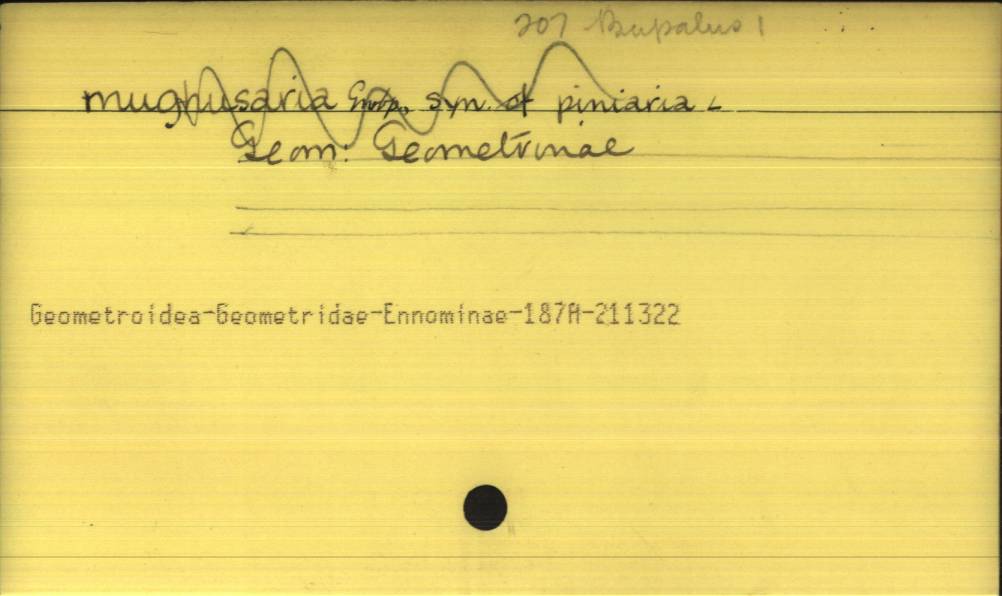 207 Bupalus 1
mughusaria syn. of piniaria L
Geom: Geometrinae
Geometroidea-Geometridae-Ennominae-187A-211322